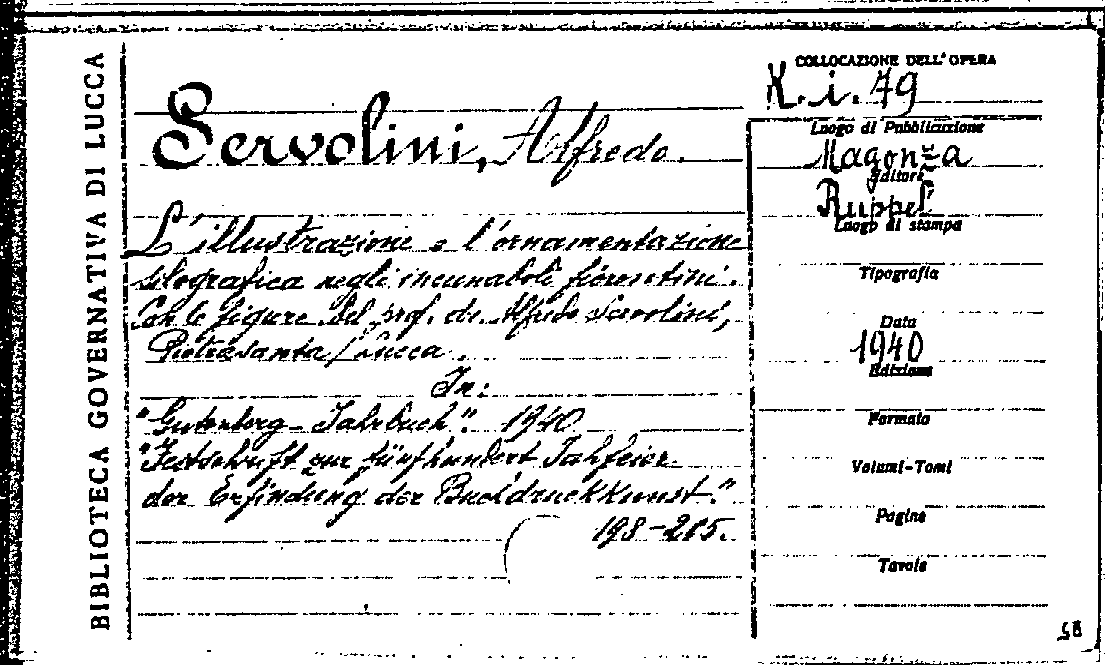 BIBLIOTECA GOVERNATIVA DI LUCCA
Servolini, Alfredo.
L'illustrazione e l'ornamentazione
silografica negli incunaboli fiorentini.
Con le figure del prof. dr. Alfredo Servolini,
Pietrasanta/Lucca.
In:
"Gutenberg-Jahrbuch". 1940
"Festschrift zur fünfhundert Jahfeier
der Erfindung der Buchdruckkunst."
198-205.
COLLOCAZIONE DELL'OPERA
K. i. 79
Luogo di Pubblicazione
Magonza
Editore
Ruppel
Luogo di stampa
Tipografia
Data
1940
Edizione
Formato
Volumi-Tomi
Pagine
Tavole